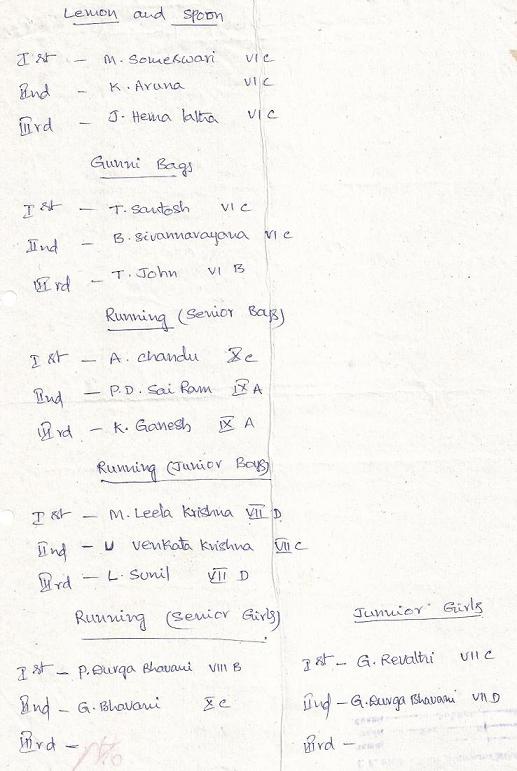 Lemon and Spoon
I st - M. Someswari VI C
IInd - K. Aruna VI C
IIIrd - J. Hema latha VI C
Gunni Bags
I st - T. Santosh VI C
IInd - B. Sivannarayana VI C
IIIrd - T. John VI B
Running (Senior Boys)
I st - A. chandu X C
IInd - P.D. Sai Ram IX A
IIIrd - K. Ganesh IX A
Running (Junior Boys)
I st - M. Leela Krishna VII D
IInd - U Venkata Krishna VII C
IIIrd - L. Sunil VII D
Running (Senior Girls)
I st - P. Durga Bhavani VIII B
IInd - G. Bhavani X C
IIIrd -
Junnior Girls
I st - G. Revathi VII C
IInd - G. Durga Bhavani VII D
IIIrd -